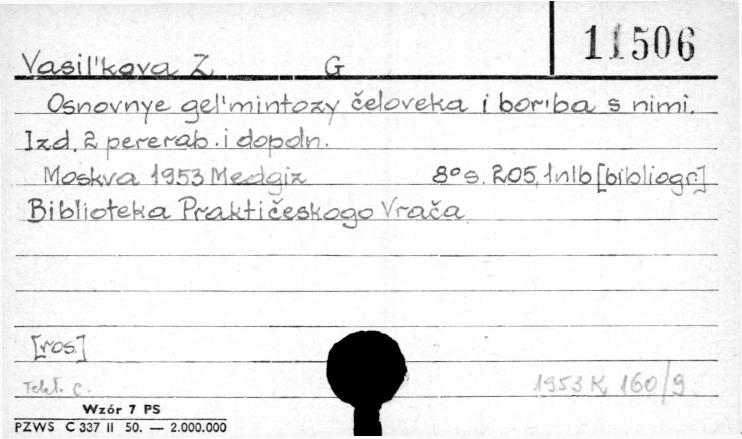 11506
Vasil'kova Z. G
Osnovnye gel'mintozy čeloveka i bor'ba s nimi.
Izd. 2 pererab. i dopoln.
Moskva 1953 Medgiz 8° s. 205, 1nlb [bibliogr.]
Biblioteka Praktičeskogo Vrača
[ros.]
Tekt. c. 1953 K 160/9
Wzór 7 PS
PZWS C 337 II 50. — 2.000.000